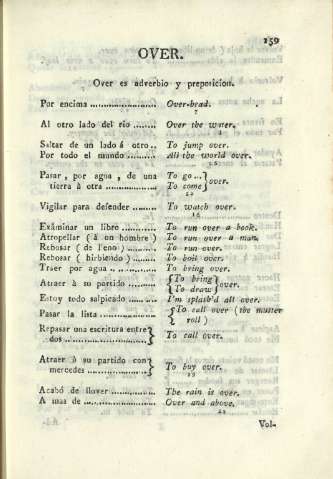 159
OVER.
Over es adverbio y preposicion.
Por encima .................... Over-head.
Al otro lado del rio ........ Over the water.
Saltar de un lado á otro .. To jump over.
Por todo el mundo ......... All the world over.
Pasar, por agua, de una tierra á otra ............... { To go ... To come } over.
Vigilar para defender ....... To watch over.
Exâminar un libro ........... To run over a book.
Atropellar (á un hombre) To run over a man.
Rebosar (de lleno) ........ To run over.
Rebosar (hirbiendo) ....... To boil over.
Traer por agua ............. To bring over.
Atraer á su partido ........ { To bring To draw } over.
Estoy todo salpicado ...... I'm splash'd all over.
Pasar la lista ................ { To call over (the muster roll)
Repasar una escritura entre dos ...................... } To call over.
Atraer á su partido con mercedes ................ } To buy over.
Acabó de llover ............ The rain is over.
A mas de ..................... Over and above.
Vol-